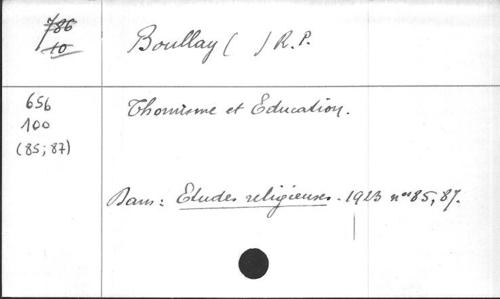 786
10
Boullay ( ) R.P.
656
100
(85; 87)
Thomisme et Education.
Dans: Etudes religieuses. 1923 nos 85, 87.